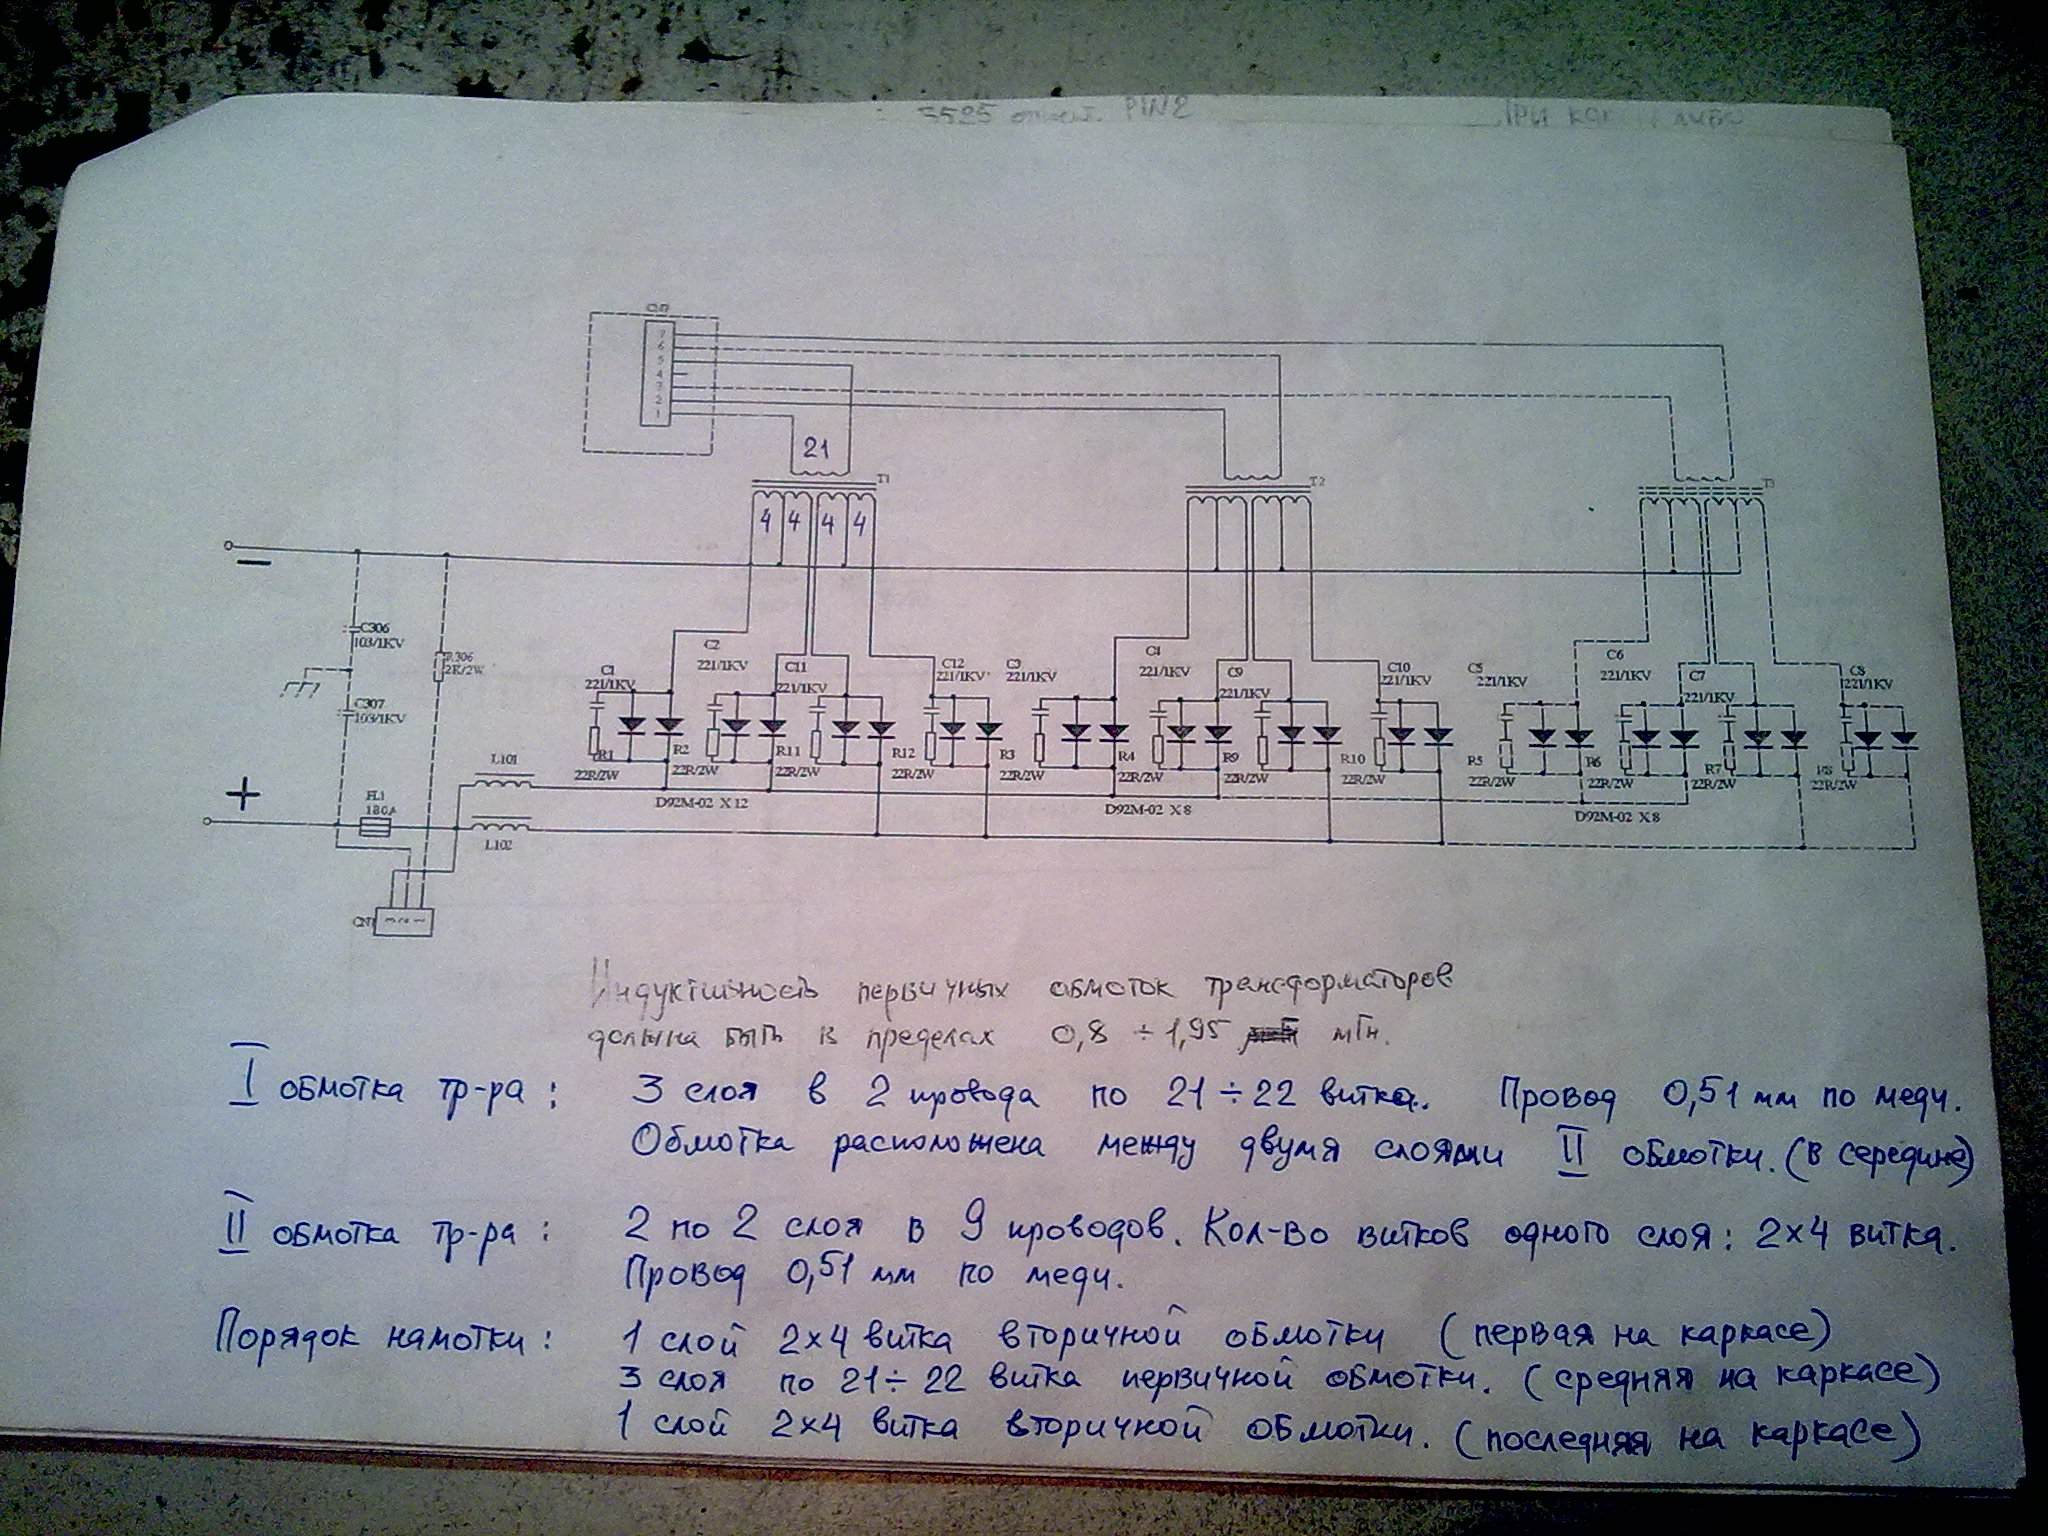 3525 PIN2
7
6
5
4
3
2
1
21
T1
T2
T3
4 4 4 4
−
C306
103/1KV
R306
2K/2W
C307
103/1KV
C1
221/1KV
C2
221/1KV
C11
221/1KV
C12
221/1KV
C3
221/1KV
C4
221/1KV
C9
221/1KV
C10
221/1KV
C5
221/1KV
C6
221/1KV
C7
221/1KV
C8
221/1KV
R1
22R/2W
R2
22R/2W
R11
22R/2W
R12
22R/2W
R3
22R/2W
R4
22R/2W
R9
22R/2W
R10
22R/2W
R5
22R/2W
R6
22R/2W
R7
22R/2W
R8
22R/2W
L101
+
FL1
180A
D92M-02 X 12
D92M-02 X 8
D92M-02 X 8
L102
3 2 1
Индуктивность первичных обмоток трансформаторов
должна быть в пределах 0,8 ÷ 1,95 мГн.
I обмотка тр-ра : 3 слоя в 2 провода по 21÷22 витка. Провод 0,51 мм по меди.
Обмотка расположена между двумя слоями II обмотки. (в середине)
II обмотка тр-ра : 2 по 2 слоя в 9 проводов. Кол-во витков одного слоя: 2×4 витка.
Провод 0,51 мм по меди.
Порядок намотки : 1 слой 2×4 витка вторичной обмотки (первая на каркасе)
3 слоя по 21÷22 витка первичной обмотки. (средняя на каркасе)
1 слой 2×4 витка вторичной обмотки. (последняя на каркасе)